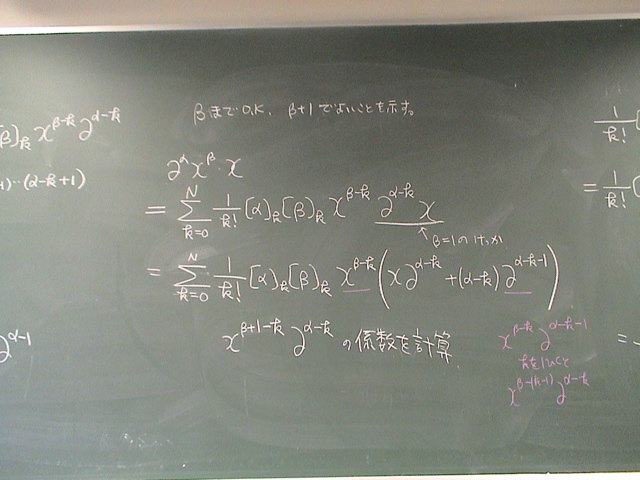 β]ₖ x^{β-k} ∂^{α-k}
1)⋯(α-k+1)
∂^{α-1}
βまでO.K. β+1でよいことを示す。
∂^α x^β・x
= Σ_{k=0}^{N} 1/k! [α]ₖ[β]ₖ x^{β-k} ∂^{α-k} x
↑β=1の
= Σ_{k=0}^{N} 1/k! [α]ₖ[β]ₖ x^{β-k} (x∂^{α-k} + (α-k)∂^{α-k-1})
x^{β+1-k} ∂^{α-k} の係数を計算
x^{β-k} ∂^{α-k-1}
kを1ひくと
x^{β-(k-1)} ∂^{α-k}
1/k! [
= 1/k! (
=